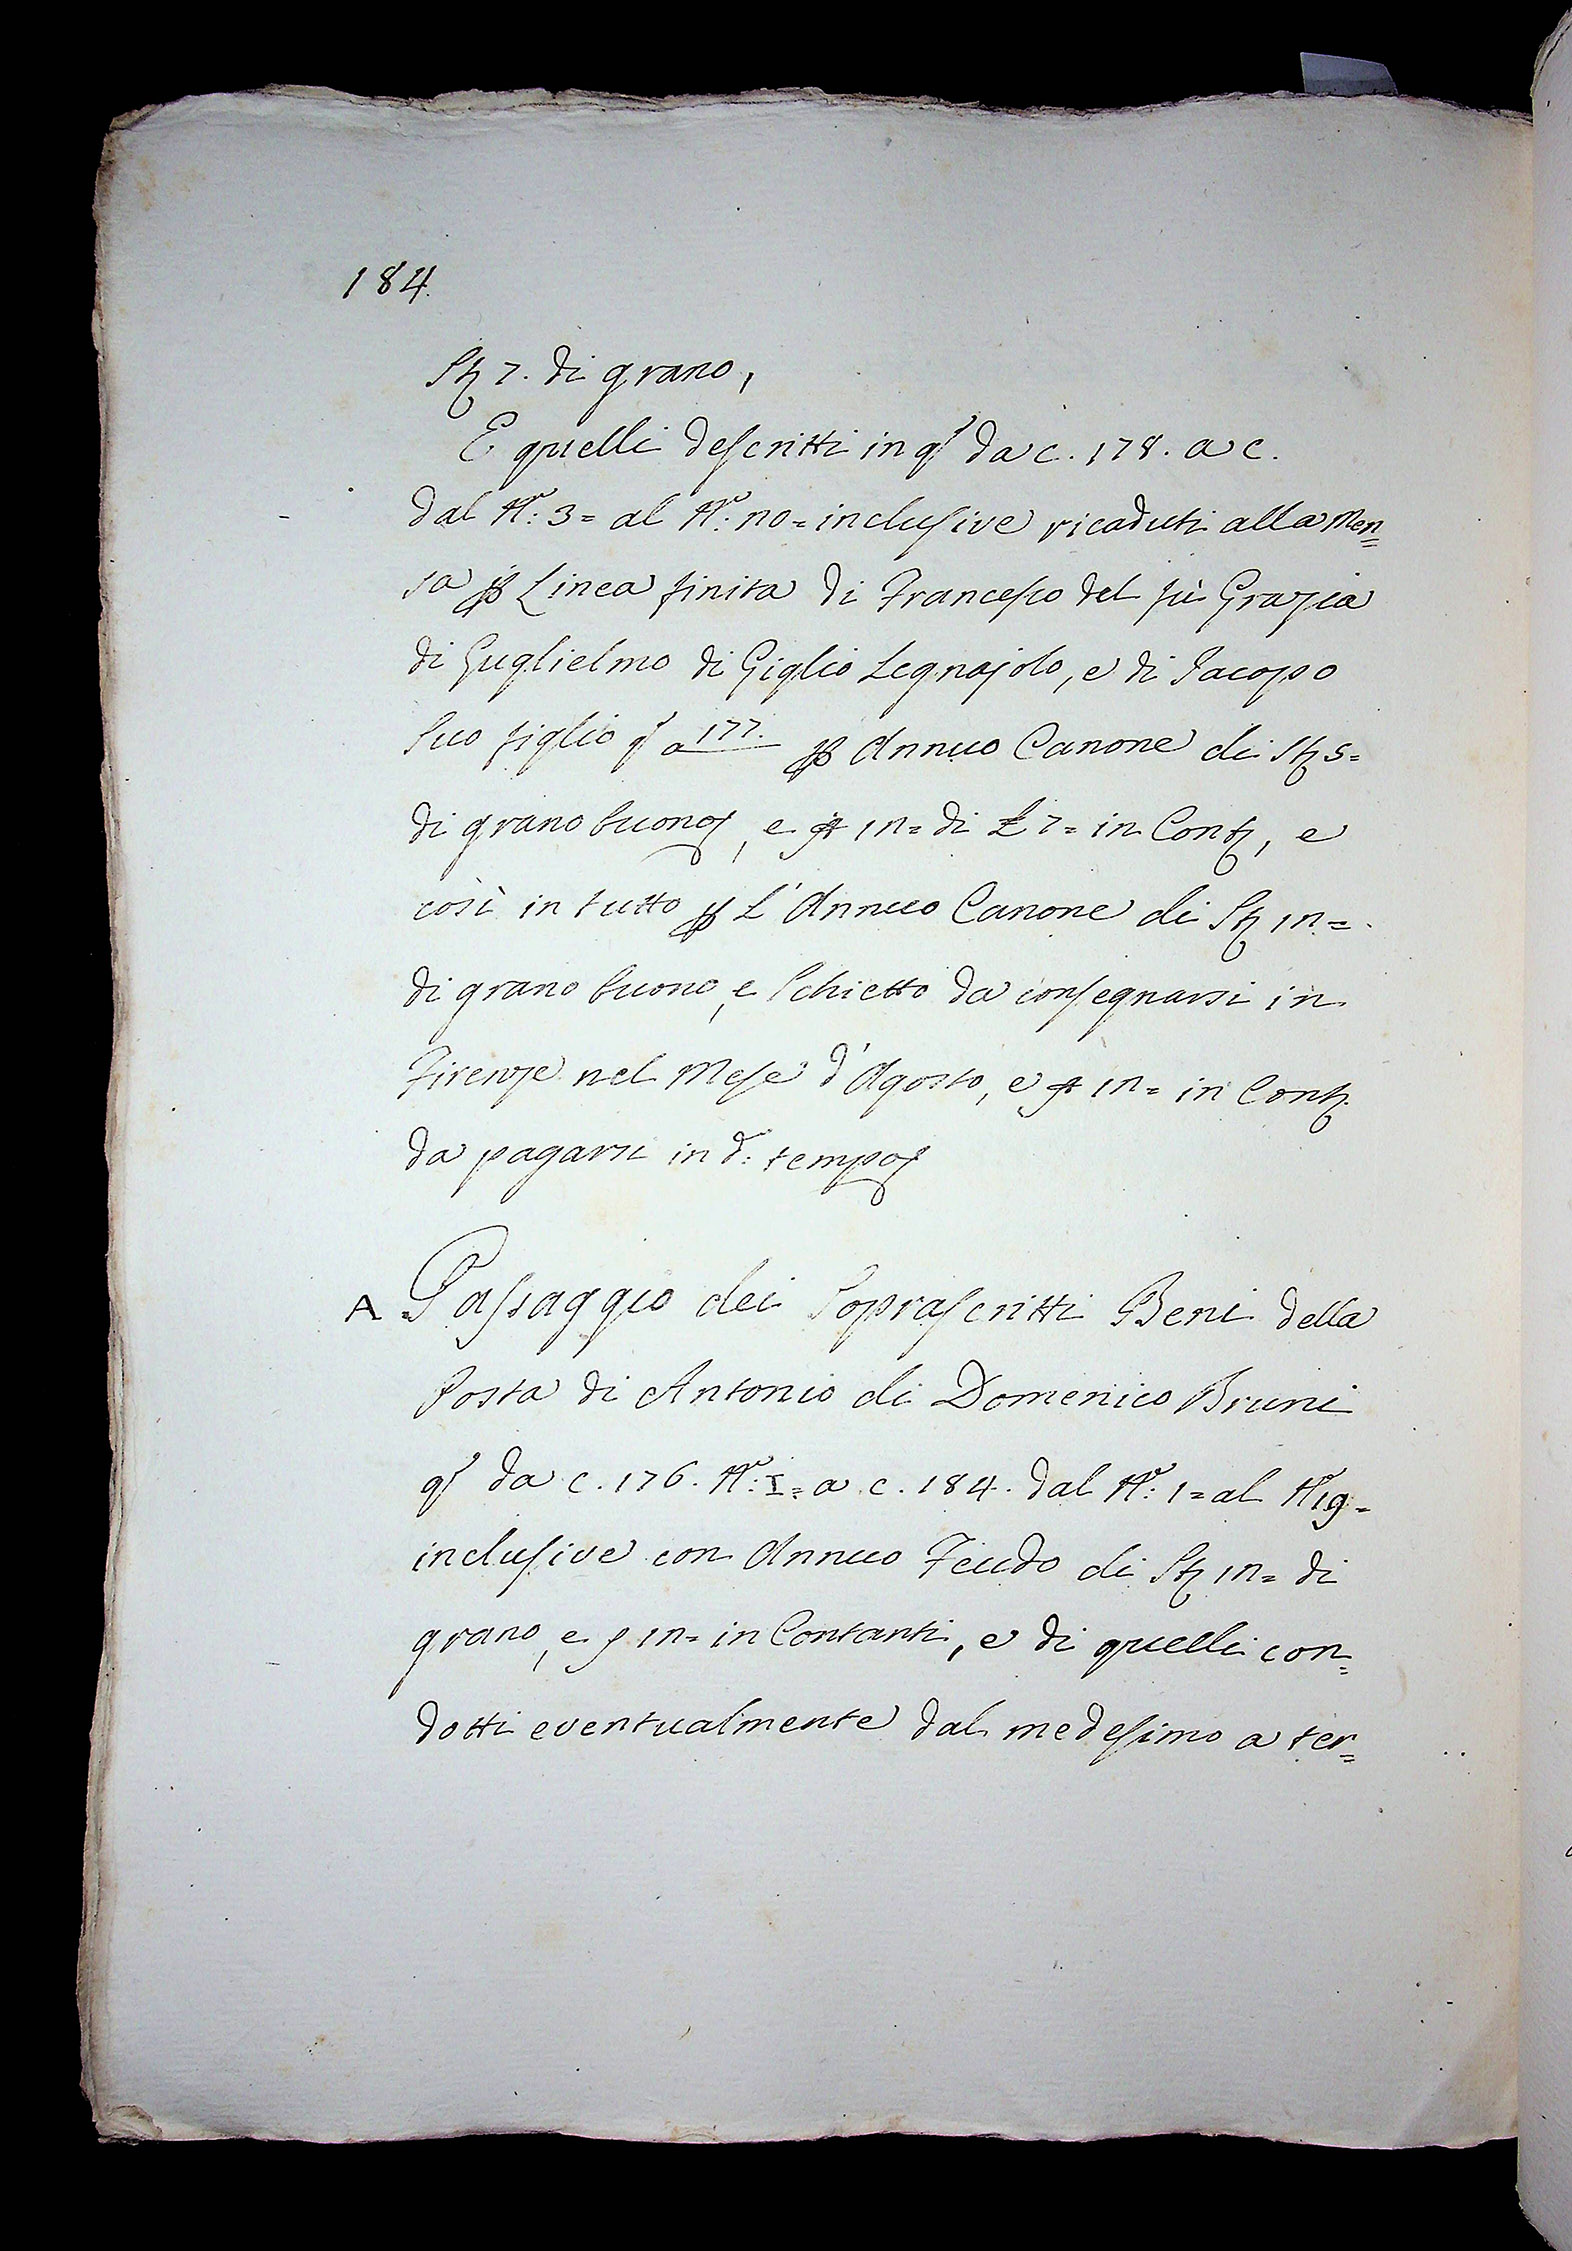 184.
St 7. di grano,
E quelli descritti in q.o da c. 178. a c.
dal N.o: 3= al N.o: 10= inclusive ricaduti alla Men=
sa p Linea finita di Francesco del fù Grazia
di Guglielmo di Giglio Legnajolo, e di Jacopo
suo figlio q.o a 177. p Annuo Canone di St 5=
di grano buono, e di £ 7= in Cont, e
così in tutto p L'Annuo Canone di St 12=
di grano buono, e schietto da consegnarsi in
Firenze nel Mese d'Agosto, e in Cont.
da pagarsi in d.o: tempo
A Passaggio dei Soprascritti Beni della
Posta di Antonio di Domenico Bruni
q.o da c. 176. N.o: I= a c. 184. dal N.o: 1= al N.o 19=
inclusive con Annuo Feudo di St 12= di
grano, e in Contanti, e di quelli con=
dotti eventualmente dal medesimo a ter=